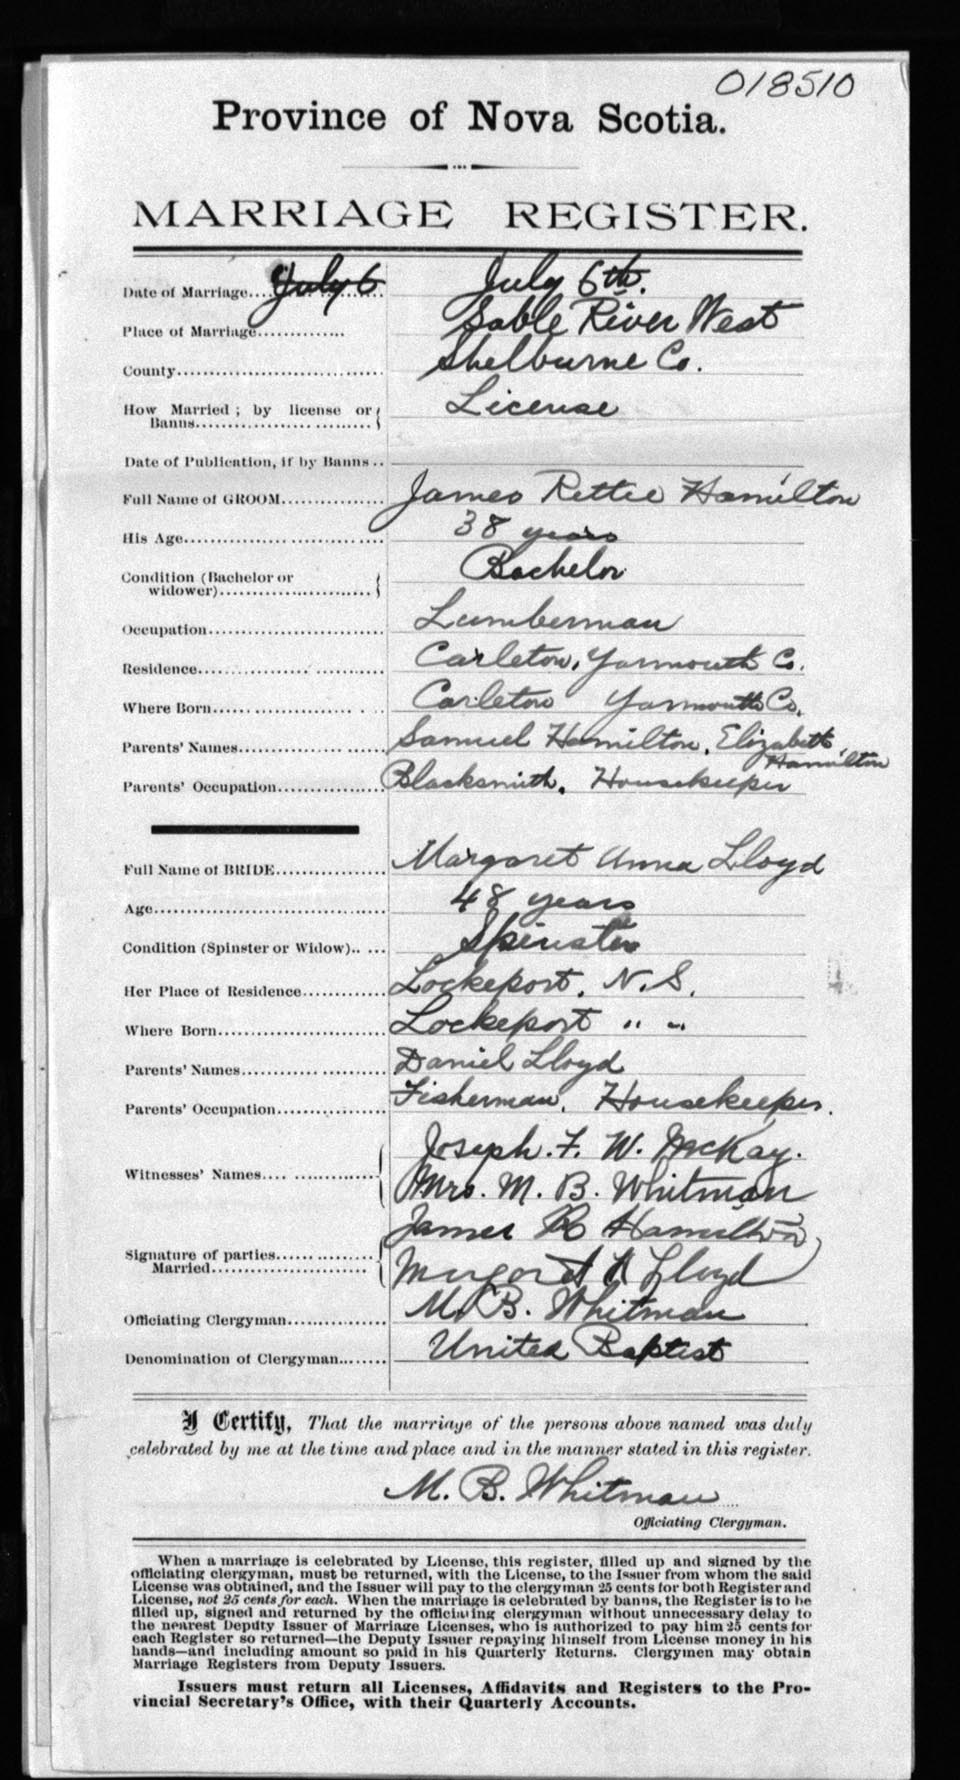 018510
Province of Nova Scotia.
MARRIAGE REGISTER.
Date of Marriage.... July 6 July 6th.
Place of Marriage.............. Sable River West
County................................ Shelburne Co.
How Married ; by license or
Banns................................ License
Date of Publication, if by Banns ..
Full Name of GROOM................ James Rettie Hamilton
His Age................................ 38 years
Condition (Bachelor or
widower)........................ Bachelor
Occupation........................... Lumberman
Residence............................ Carleton, Yarmouth Co.
Where Born.......................... Carleton Yarmouth Co.
Parents' Names...................... Samuel Hamilton, Elizabeth
Hamilton
Parents' Occupation................ Blacksmith, Housekeeper
Full Name of BRIDE................. Margaret Anna Lloyd
Age.................................... 48 years
Condition (Spinster or Widow).. .... Spinster
Her Place of Residence............ Lockeport, N.S.
Where Born.......................... Lockeport " "
Parents' Names...................... Daniel Lloyd
Parents' Occupation................ Fisherman, Housekeeper.
Witnesses' Names.................... Joseph. F. W. McKay.
Mrs. M. B. Whitman
Signature of parties................ James R Hamilton
Married.......................... Margaret A Lloyd
Officiating Clergyman............... M. B. Whitman
Denomination of Clergyman........ United Baptist
I Certify, That the marriage of the persons above named was duly
celebrated by me at the time and place and in the manner stated in this register.
M. B. Whitman
Officiating Clergyman.
When a marriage is celebrated by License, this register, filled up and signed by the
officiating clergyman, must be returned, with the License, to the Issuer from whom the said
License was obtained, and the Issuer will pay to the clergyman 25 cents for both Register and
License, not 25 cents for each. When the marriage is celebrated by banns, the Register is to be
filled up, signed and returned by the officiating clergyman without unnecessary delay to
the nearest Deputy Issuer of Marriage Licenses, who is authorized to pay him 25 cents for
each Register so returned—the Deputy Issuer repaying himself from License money in his
hands—and including amount so paid in his Quarterly Returns. Clergymen may obtain
Marriage Registers from Deputy Issuers.
Issuers must return all Licenses, Affidavits and Registers to the Pro-
vincial Secretary's Office, with their Quarterly Accounts.